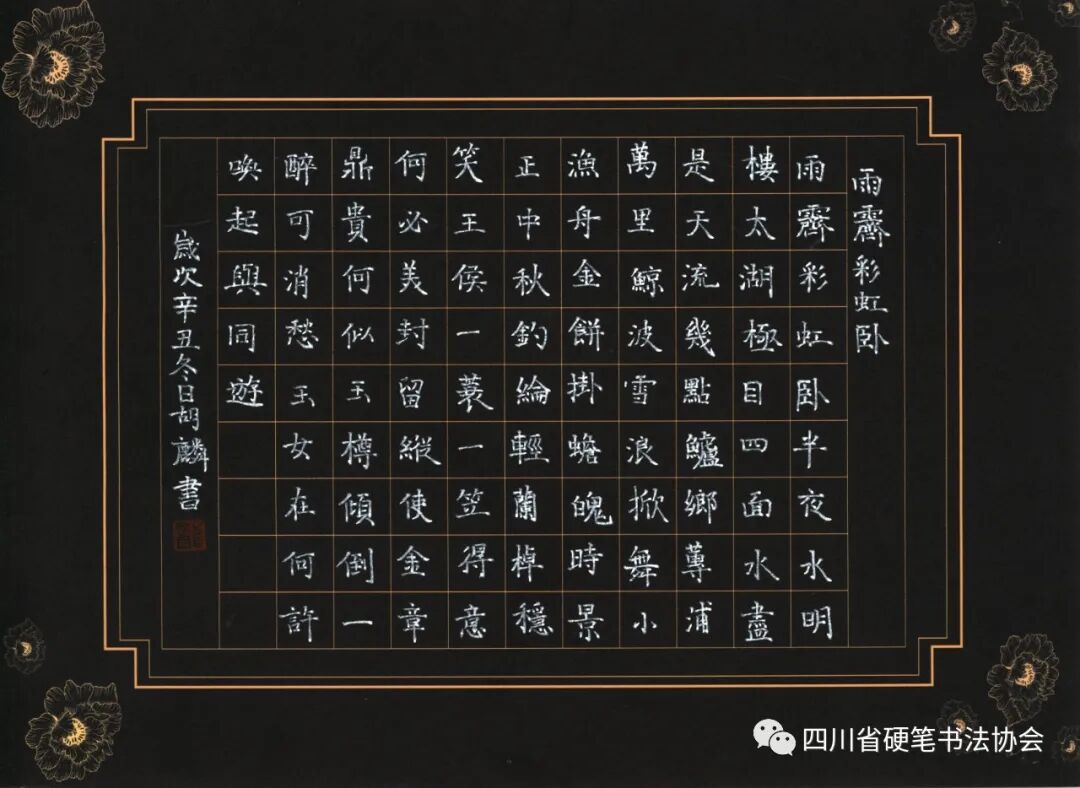 雨霽彩虹卧
雨霽彩虹卧半夜水明
樓太湖極目四面水盡
是天流幾點鱸鄉蓴浦
萬里鯨波雪浪掀舞小
漁舟金餅掛蟾魄時景
正中秋釣綸輕蘭棹穩
笑王侯一蓑一笠得意
何必美封留縱使金章
鼎貴何似玉樽傾倒一
醉可消愁玉女在何許
喚起與同遊
歲次辛丑冬日胡麟書
四川省硬笔书法协会